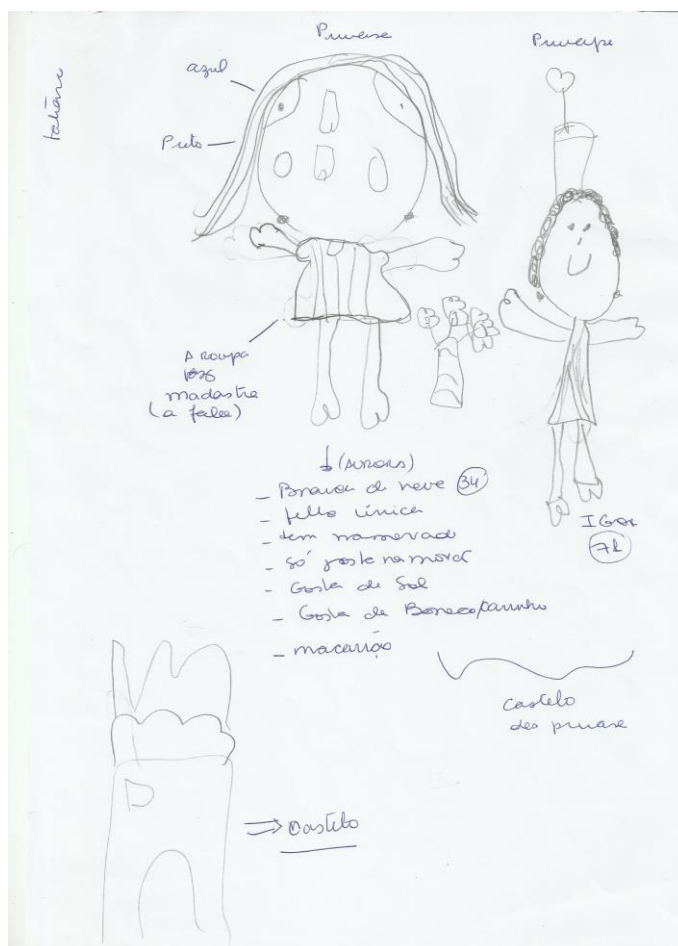 Princesa
Principe
azul
Preto
A Roupa
madastra
(a falsa)
(AURORA)
- Branca de neve 34
- filha única
- tem namorado
- Só gosta namorar
- Gosta de Sol
- Gosta de Boneca/carrinho
- macarrão
IGOR
Castelo
da princesa
=> Castelo